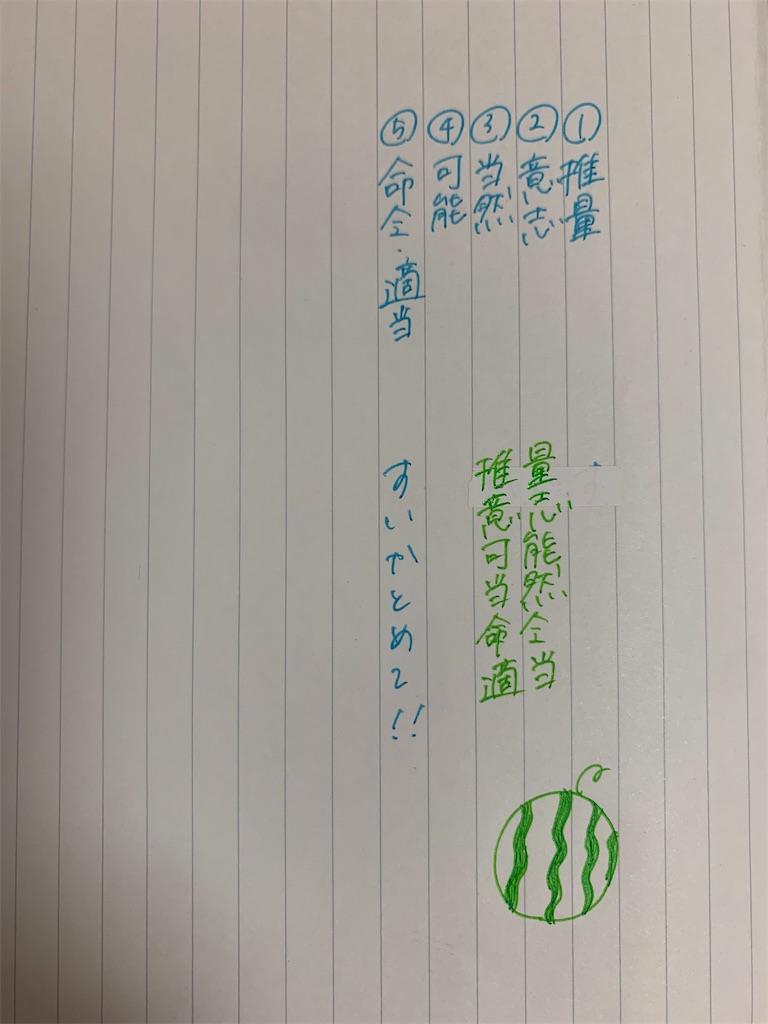 ①推量
②意志
③当然
④可能
⑤命令・適当
量志能然令当
推意可当命適
すいかとめて!!